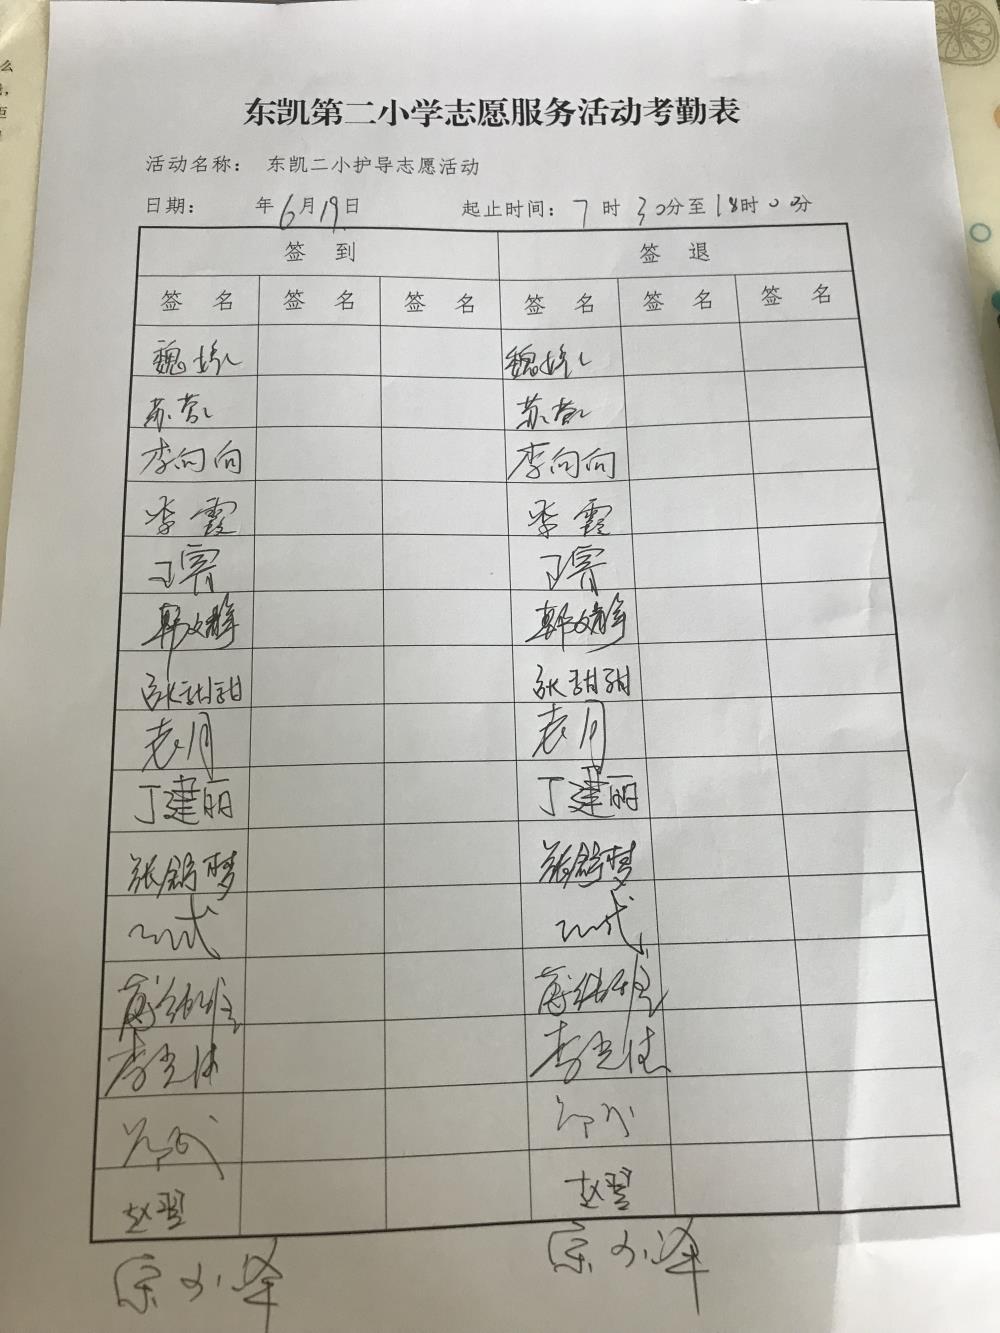 东凯第二小学志愿服务活动考勤表
活动名称： 东凯二小护导志愿活动
日期： 年6月19日 起止时间：7时30分至18时00分
签 到 签 退
签 名 签 名 签 名 签 名 签 名 签 名
魏婷 魏婷
苏营 苏营
李向向 李向向
李霞 李霞
王霄 王霄
韩文静 韩文静
张甜甜 张甜甜
袁月 袁月
丁建丽 丁建丽
张鸽梦 张鸽梦
李先佳 李先佳
赵翌 赵翌
宗小泽 宗小泽